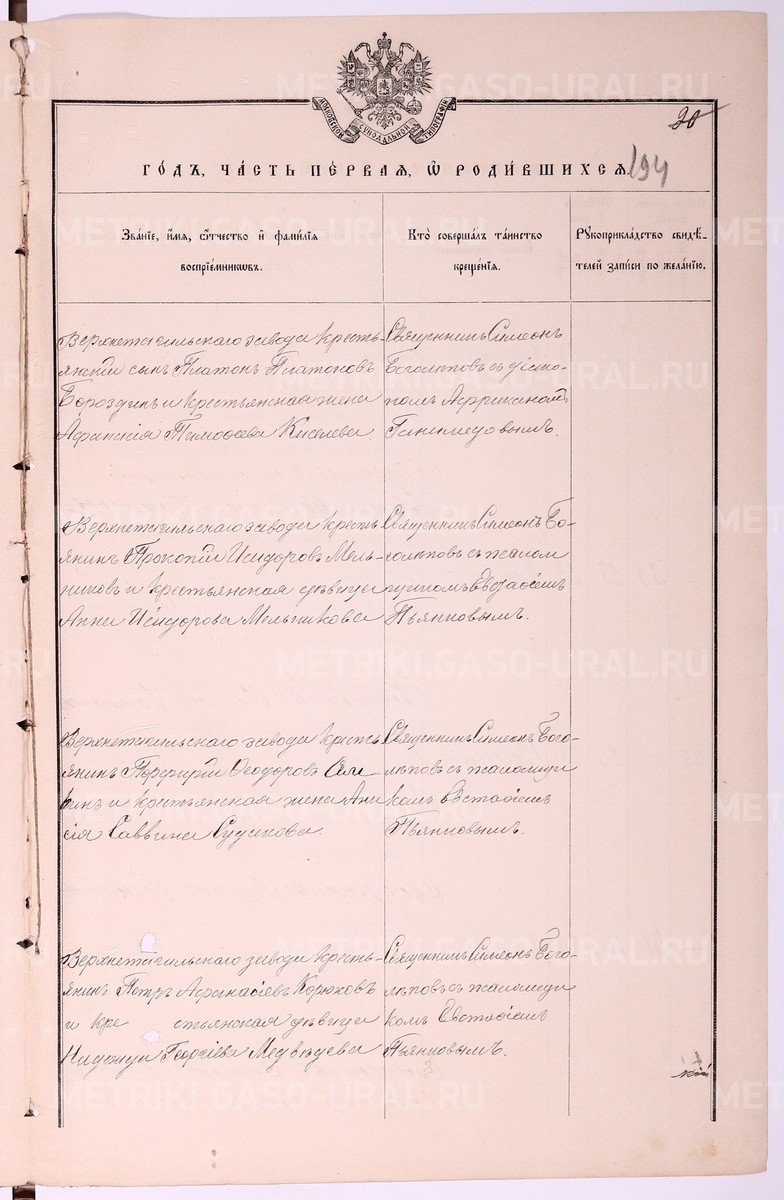 МОСКОВСКОЙ СѴНОДАЛЬНОЙ ТИПОГРАФІИ
20
194
ГО́ДЪ, ЧА́СТЬ ПЕ́РВАЯ, Ѽ РОДИ́ВШИХСЯ.
Зва́ніе, и҆́мя, ѻ҆́тчество и҆ фами́лїѧ
воспрїе́мникѡвъ.
Кто̀ соверша́лъ та́инство
креще́нїѧ.
Рꙋкоприкла́дство свидѣ́-
телей за́писи по жела́нїю.
Верхнетагильскаго завода кресть-
янскій сынъ Платонъ Платоновъ
Бороздинъ и крестьянская жена
Афанасія Тимофѣева Киселева.
Священникъ Симеонъ
Боголѣповъ съ діако-
номъ Африканомъ
Ганимедовымъ.
Верхнетагильскаго завода кресть-
янинъ Прокопій Исидоровъ Мель-
никовъ и крестьянская дѣвица
Анна Исидорова Мельникова
Священникъ Симеонъ Бо-
голѣповъ съ псалом
щикомъ Евстафіемъ
Пьянковымъ.
Верхнетагильскаго завода кресть-
янинъ Порфирій Ѳеодоровъ
и крестьянская жена Ани
сія Саввина Судакова.
Священникъ Симеонъ Бого-
лѣповъ съ псаломщи
комъ Евстафіемъ
Пьянковымъ.
Верхнетагильскаго завода кресть-
янинъ Петръ Афанасіевъ Корюковъ
и кре стьянская дѣвица
Надежда Георгіева Медвѣдева
Священникъ Симеонъ Бого-
лѣповъ съ псаломщи
комъ Евстафіемъ
Пьянковымъ.
кій
METRIKI.GASO-URAL.RU